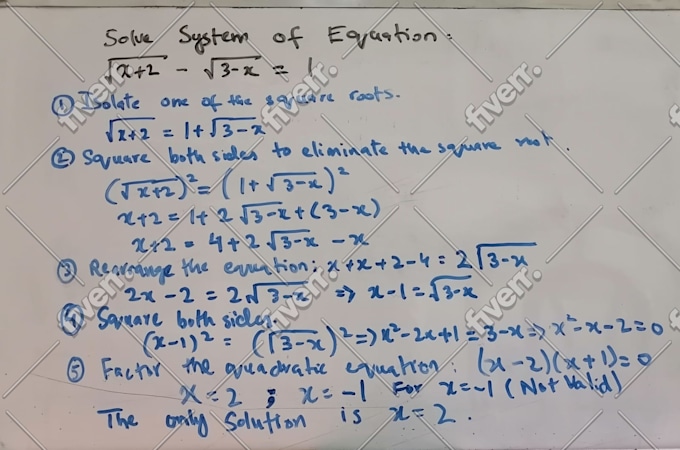 Solve System of Equation:
√x+2 - √3-x = 1
① Isolate one of the square roots.
√x+2 = 1+√3-x
② Square both sides to eliminate the square root.
(√x+2)² = (1+√3-x)²
x+2 = 1+2√3-x+(3-x)
x+2 = 4+2√3-x -x
③ Rearrange the equation: x+x+2-4=2√3-x
2x-2 = 2√3-x ⇒ x-1=√3-x
④ Square both sides.
(x-1)² = (√3-x)² ⇒ x²-2x+1=3-x ⇒ x²-x-2=0
⑤ Factor the quadratic equation: (x-2)(x+1)=0
x=2 ; x=-1 For x=-1 (Not Valid)
The only Solution is x=2.
fiverr.
fiverr.
fiverr.
fiverr.
fiverr.
fiverr.
fiverr.
fiverr.